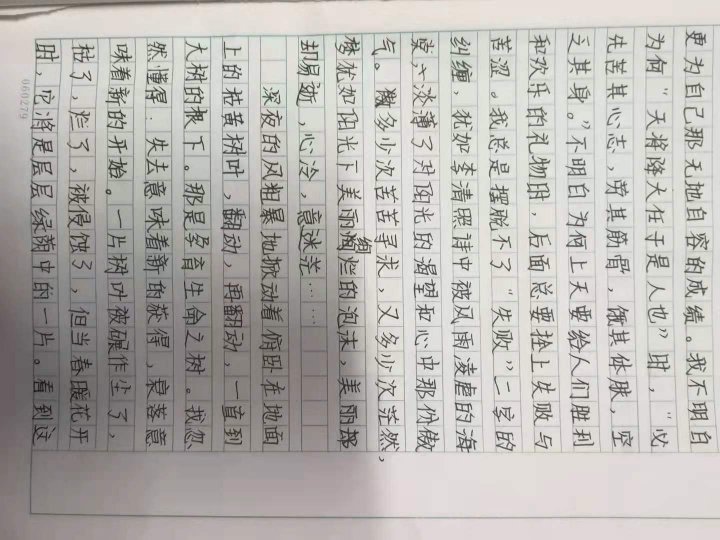 更为自己那无地自容的成绩。我不明白
为何“天将降大任于是人也”时，“必
先苦其心志，劳其筋骨，饿其体肤，空
乏其身。”不明白为何上天要给人们胜利
和欢乐的礼物时，后面总要拴上失败与
苦涩。我总是摆脱不了“失败”二字的
纠缠，犹如李清照诗中被风雨凌虐的海
棠，淡薄了对阳光的渴望和心中那份傲
气。多少次苦苦寻求，又多少次茫然，
梦犹如阳光下美丽绚烂的泡沫，美丽
却易逝，心冷，意迷茫……
深夜的风粗暴地掀动着俯卧在地面
上的枯黄树叶，翻动，再翻动，一直到
大树的根下。那是孕育生命之树。我忽
然懂得：失去意味着新的获得，衰落意
味着新的开始。一片树叶被碾作尘了，
枯了，烂了，被侵蚀了，但当春暖花开
时，它将是层层绿荫中的一片。看到这
060279